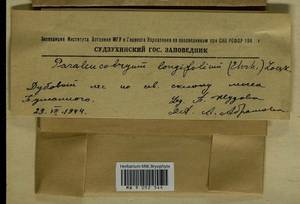 Экспедиция Института Ботаники МГУ и Главного Управления по заповедникам при СНК РСФСР 194 г.
СУДЗУХИНСКИЙ ГОС. ЗАПОВЕДНИК
Paraleucobryum longifolium (Ehrh.) Loesk.
Дубовый лес по склону мыса
Туманного.
29.VI.1944.
Det. А. Абрамова
Herbarium MW, Bryophyta